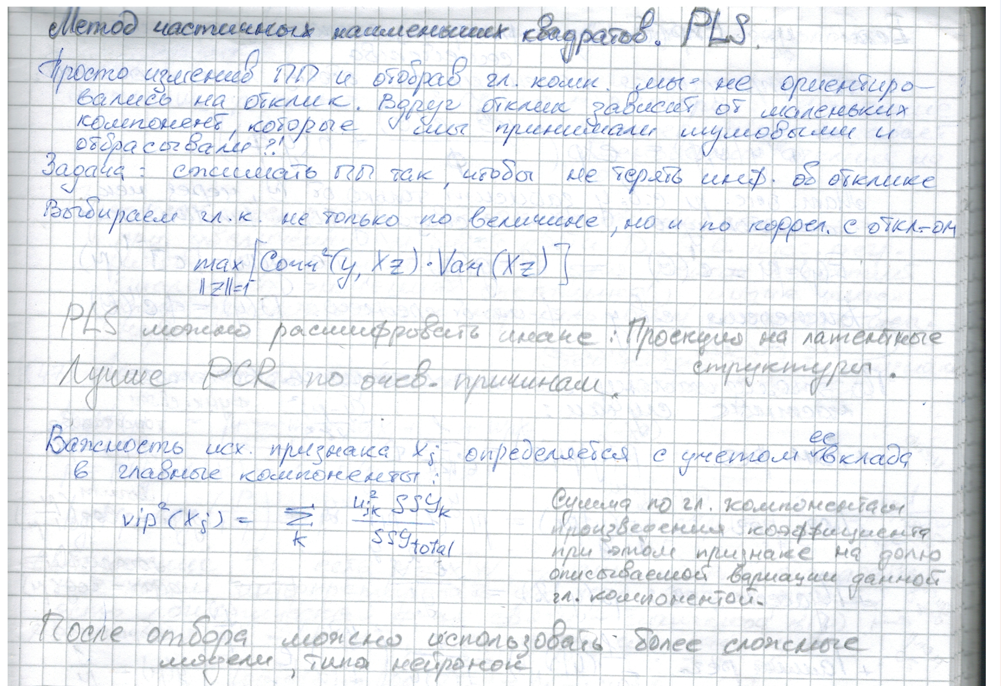 Метод частичных наименьших квадратов. PLS.
Просто изменив ПП и отобрав гл. комп. мы не ориентиро-
вались на отклик. Вдруг отклик зависит от маленьких
компонент, которые мы принимали шумовыми и
отбрасывали?!
Задача: сжимать ПП так, чтобы не терять инф. об отклике
Выбираем гл.к. не только по величине, но и по коррел. с откл-ом
max [Corr²(y, Xz)·Var(Xz)]
||z||=1
PLS можно расшифровать иначе: Проекция на латентные
структуры.
Лучше PCR по очев. причинам.
Важность исх. признака Xj определяется с учетом ее вклада
в главные компоненты:
vip²(Xj) = Σ u²jk SSYk
k SSYtotal
Сумма по гл. компонентам
произведения коэффициента
при этом признаке на долю
описываемой вариации данной
гл. компонентой.
После отбора можно использовать более сложные
модели, типа нейронок